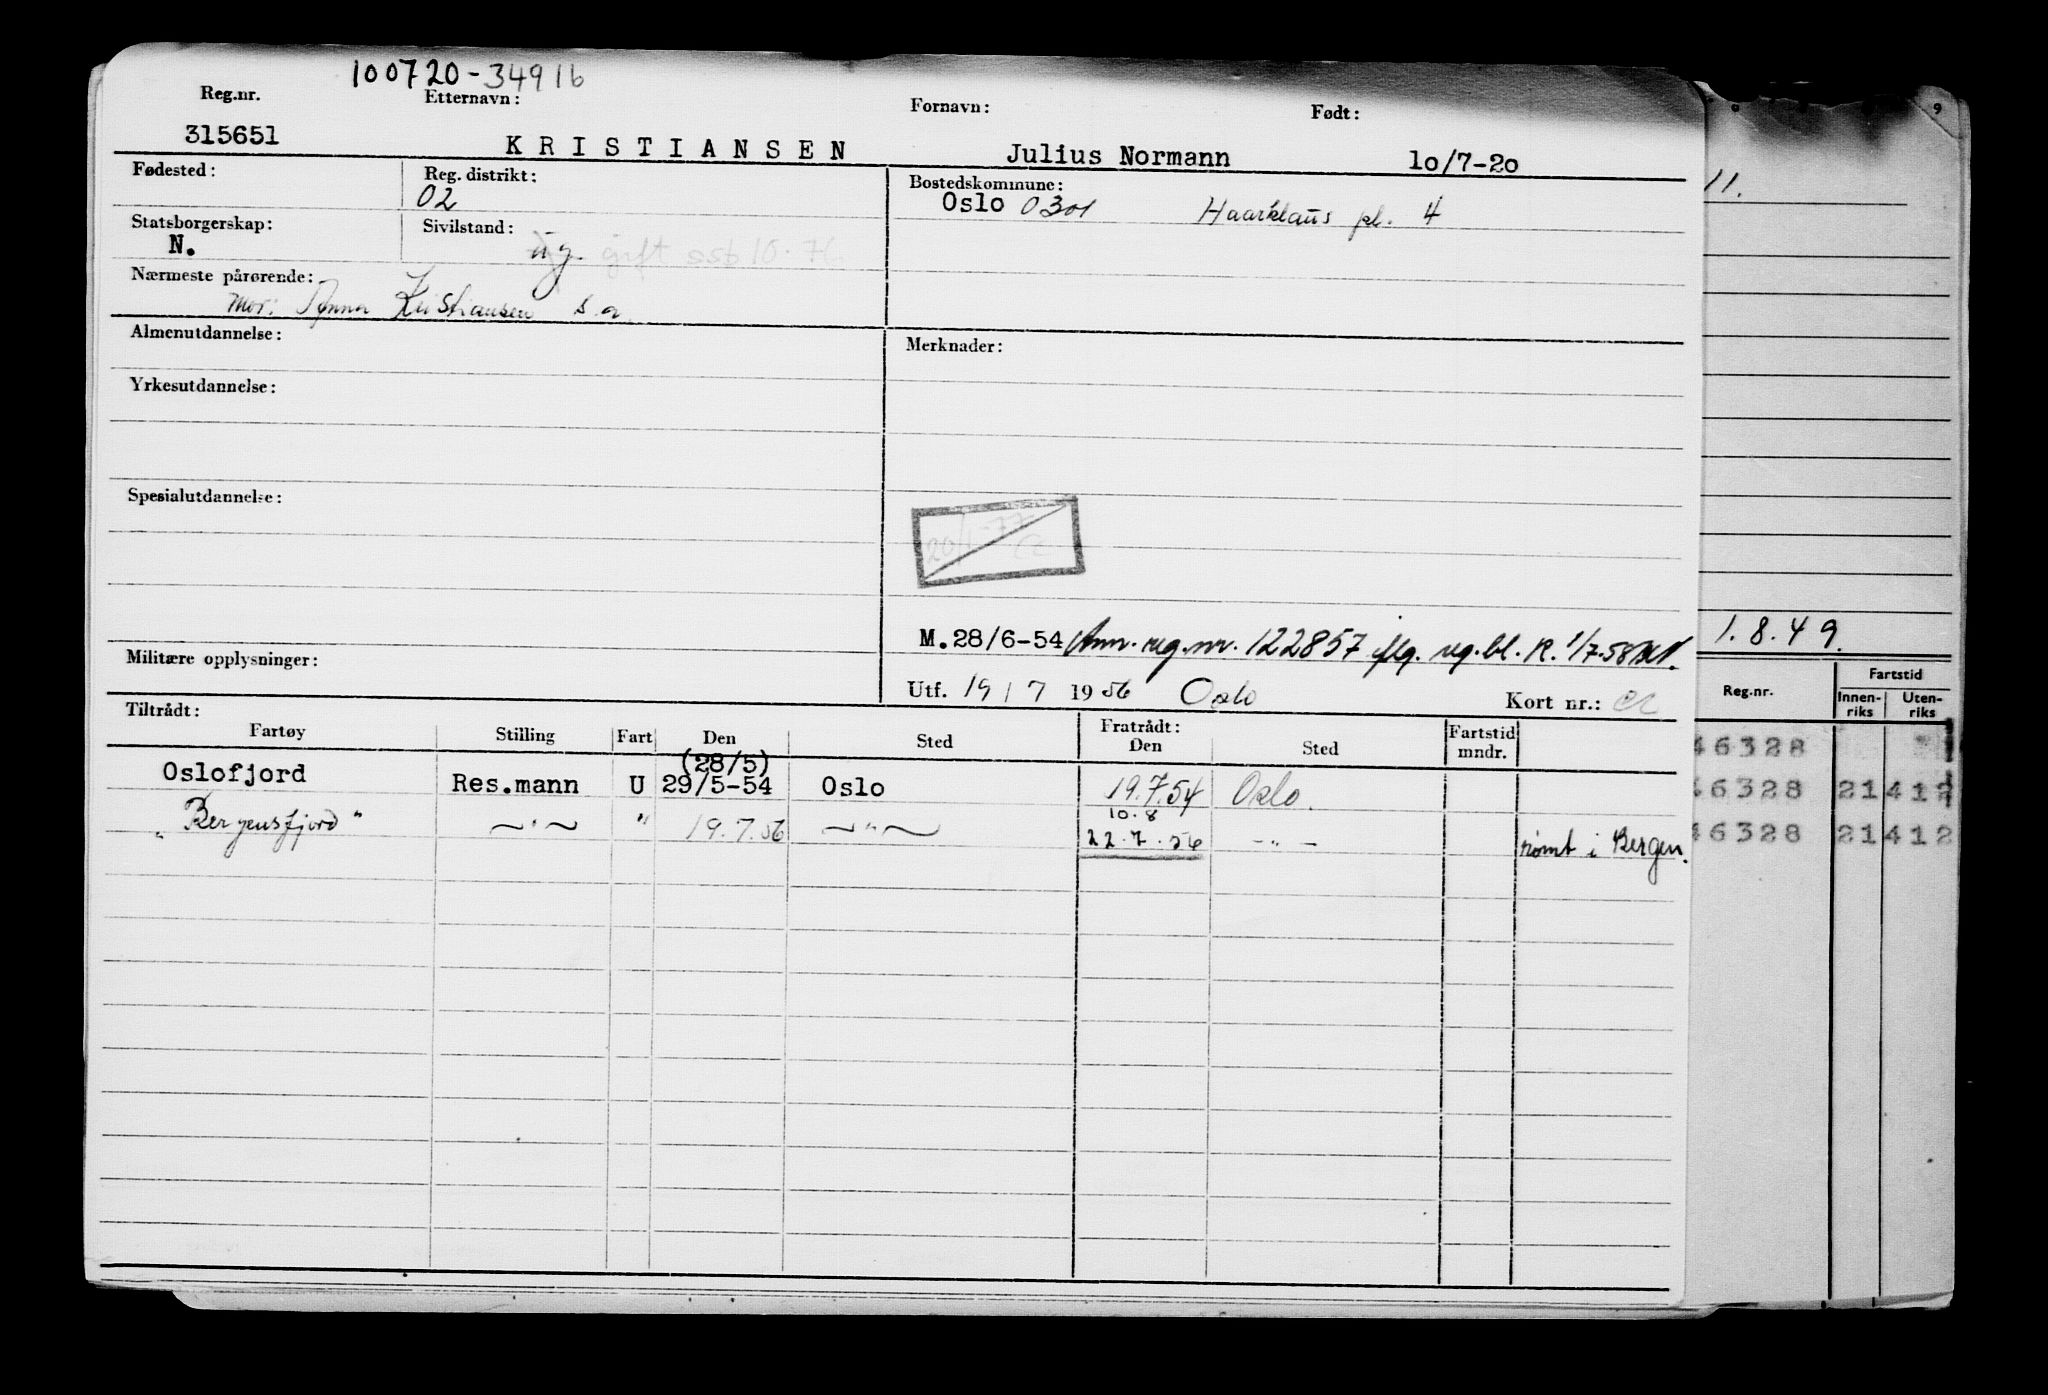 100720-34916
Reg.nr. Etternavn: Fornavn: Født:
315651 KRISTIANSEN Julius Normann 10/7-20
Fødested: Reg. distrikt: Bostedskommune:
02 Oslo 0301 Haarklaus pl. 4
Statsborgerskap: Sivilstand:
N. ug. gift ssb 10.76
Nærmeste pårørende:
Mor: Anna Kristiansen s.a.
Almenutdannelse: Merknader:
Yrkesutdannelse:
Spesialutdannelse:
20/1-77
M.28/6-54 Ann. reg.nr. 122857 iflg. reg.bl. R. 1/7-58
Militære opplysninger:
Utf. 19/7 1956 Oslo Kort nr.:
Tiltrådt: Fratrådt:
Fartøy Stilling Fart Den Sted Den Sted Fartstid mndr.
(28/5)
Oslofjord Res.mann U 29/5-54 Oslo 19.7.54 Oslo.
10.8
"Bergensfjord" —"— " 19.7.56 —"— 22.7.56 -"- rømt i Bergen.
9
11.
1.8.49.
Reg.nr. Fartstid
Innen-riks Uten-riks
46328
46328 21 412
46328 21 412